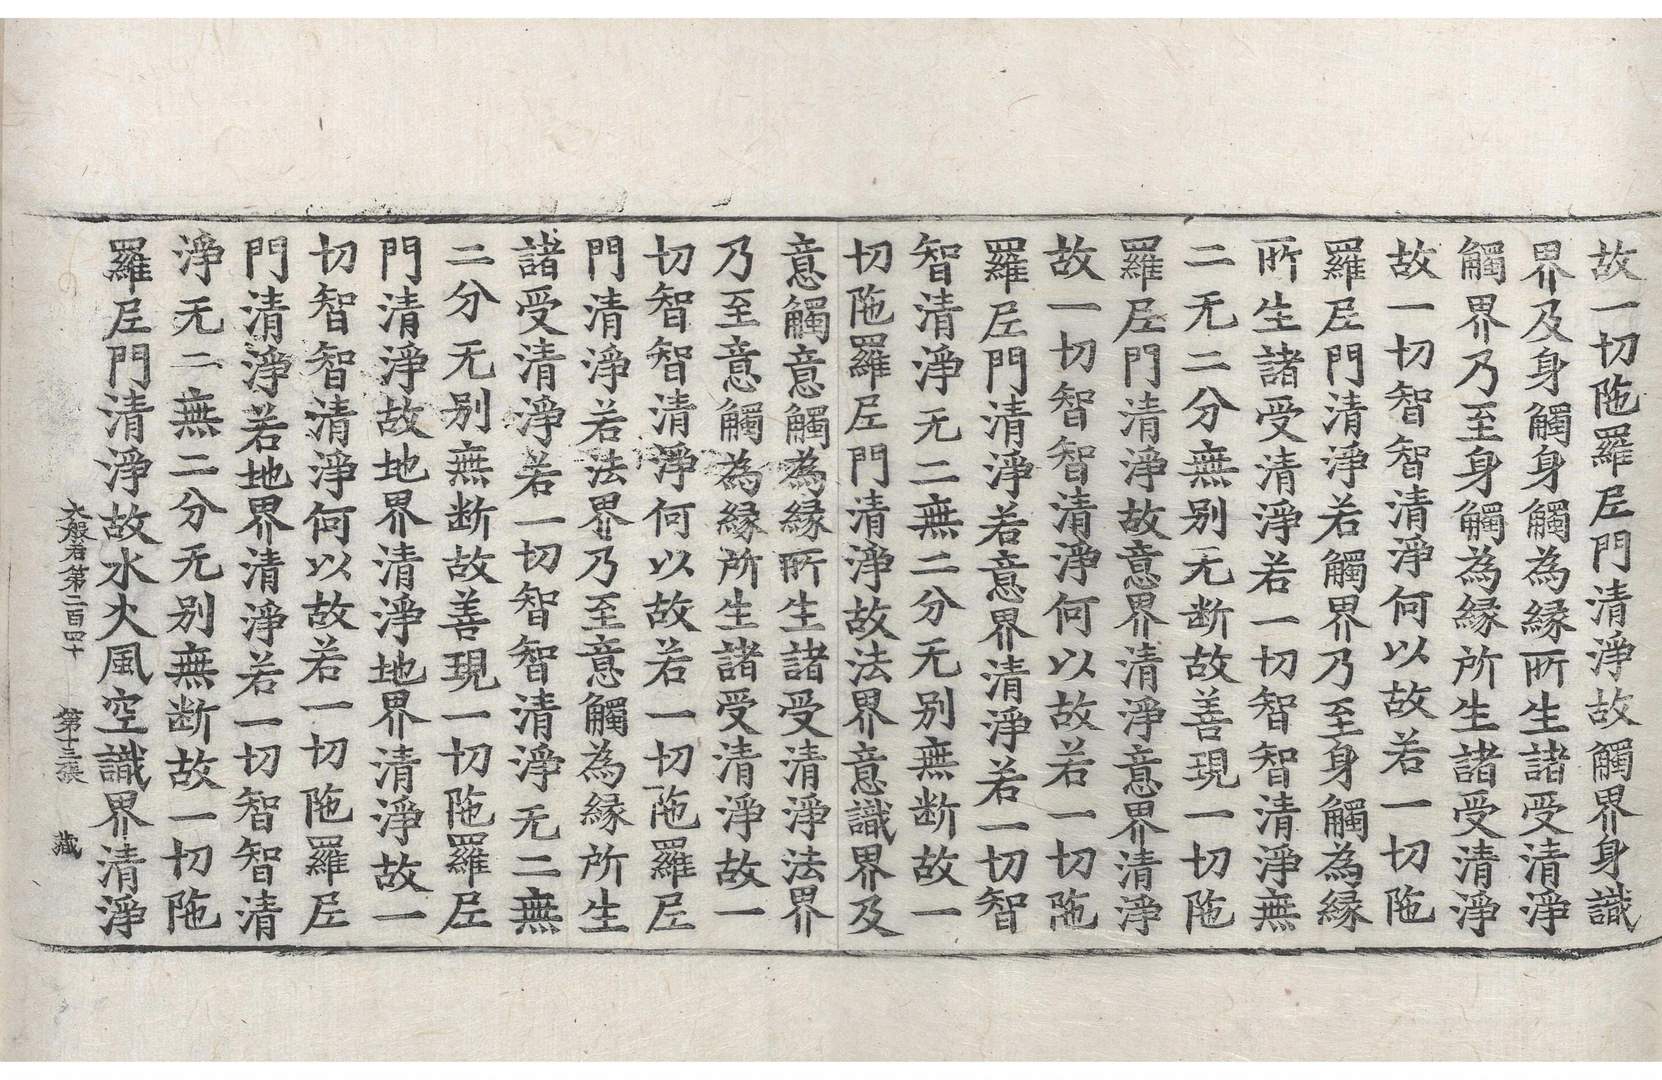 故一切陁羅𡰱門清淨故觸界身識
界及身觸身觸為縁所生諸受清淨
觸界乃至身觸為縁所生諸受清淨
故一切智智清淨何以故若一切陁
羅𡰱門清淨若觸界乃至身觸為縁
所生諸受清淨若一切智智清淨無
二无二分無别无断故善現一切陁
羅𡰱門清淨故意界清淨意界清淨
故一切智智清淨何以故若一切陁
羅𡰱門清淨若意界清淨若一切智
智清淨无二無二分无别無断故一
切陁羅𡰱門清淨故法界意識界及
意觸意觸為縁所生諸受清淨法界
乃至意觸為縁所生諸受清淨故一
切智智清淨何以故若一切陁羅𡰱
門清淨若法界乃至意觸為縁所生
諸受清淨若一切智智清淨无二無
二分无别無断故善現一切陁羅𡰱
門清淨故地界清淨地界清淨故一
切智智清淨何以故若一切陁羅𡰱
門清淨若地界清淨若一切智智清
淨无二無二分无别無断故一切陁
羅𡰱門清淨故水火風空識界清淨
大般若第二百四十　第三張　藏